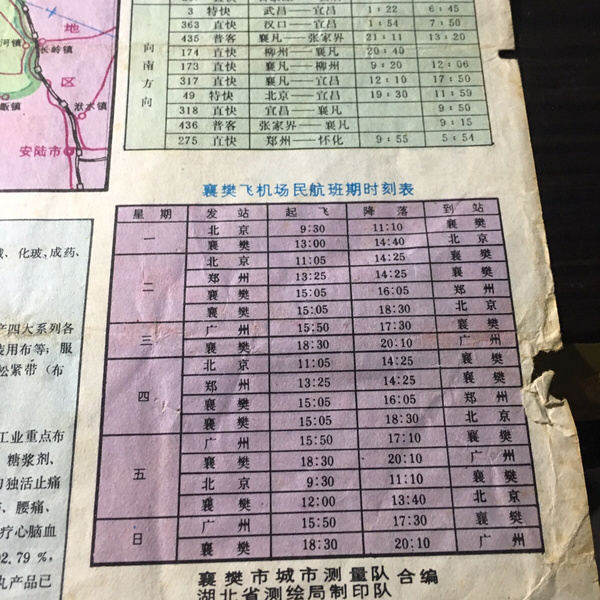 3 特快 武昌——宜昌 1:22 6:45
363 直快 汉口——宜昌 1:54 7:50
435 普客 襄凡——张家界 21:11 13:20
174 直快 柳州——襄凡 20:40
173 直快 襄凡——柳州 9:20 12:06
317 直快 襄凡——宜昌 12:10 17:50
49 特快 北京——宜昌 19:30 11:59
318 直快 宜昌——襄凡 9:50
436 普客 张家界——襄凡 9:15
275 直快 郑州——怀化 9:55 5:54
向南方向
地
区
河镇
长岭镇
洑水镇
安陆市
襄樊飞机场民航班期时刻表
星期 发站 起飞 降落 到站
一 北京 9:30 11:10 襄樊
襄樊 13:00 14:40 北京
二 北京 11:05 14:25 襄樊
郑州 13:25 14:25 襄樊
襄樊 15:05 16:05 郑州
襄樊 15:05 18:30 北京
三 广州 15:50 17:30 襄樊
襄樊 18:30 20:10 广州
四 北京 11:05 14:25 襄樊
郑州 13:25 14:25 襄樊
襄樊 15:05 16:05 郑州
襄樊 15:05 18:30 北京
五 广州 15:50 17:10 襄樊
襄樊 18:30 20:10 广州
北京 9:30 11:10 襄樊
襄樊 12:00 13:40 北京
日 广州 15:50 17:30 襄樊
襄樊 18:30 20:10 广州
襄樊市城市测量队 合编
湖北省测绘局制印队
、化玻,成药、
四大系列各
用布等;服
紧带(布
工业重点布
糖浆剂、
独活止痛
腰痛、
疗心脑血
92.79%,
丸产品已